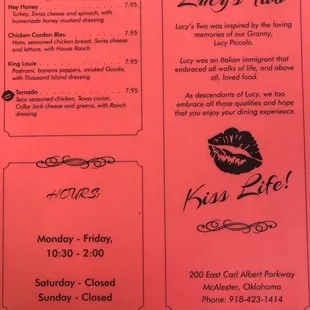 Hey Honey 7.95
Turkey, Swiss cheese and spinach, with
homemade honey mustard dressing
Chicken Cordon Bleu 7.95
Ham, seasoned chicken breast, Swiss cheese
and lettuce, with House Ranch
King Louie 7.95
Pastrami, banana peppers, smoked Gouda,
with Thousand Island dressing
Tornado 7.95
Taco seasoned chicken, Texas caviar,
Colby Jack cheese and greens, with Ranch
dressing
HOURS:
Monday - Friday,
10:30 - 2:00
Saturday - Closed
Sunday - Closed
Lucy's Two
Lucy's Two was inspired by the loving
memories of our Granny,
Lucy Piccolo.
Lucy was an Italian immigrant that
embraced all walks of life, and above
all, loved food.
As descendants of Lucy, we too
embrace all those qualities and hope
that you enjoy your dining expereience.
Kiss Life!
200 East Carl Albert Parkway
McAlester, Oklahoma
Phone: 918-423-1414